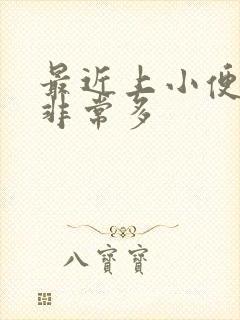 最近上小便
非常多
八寳寳